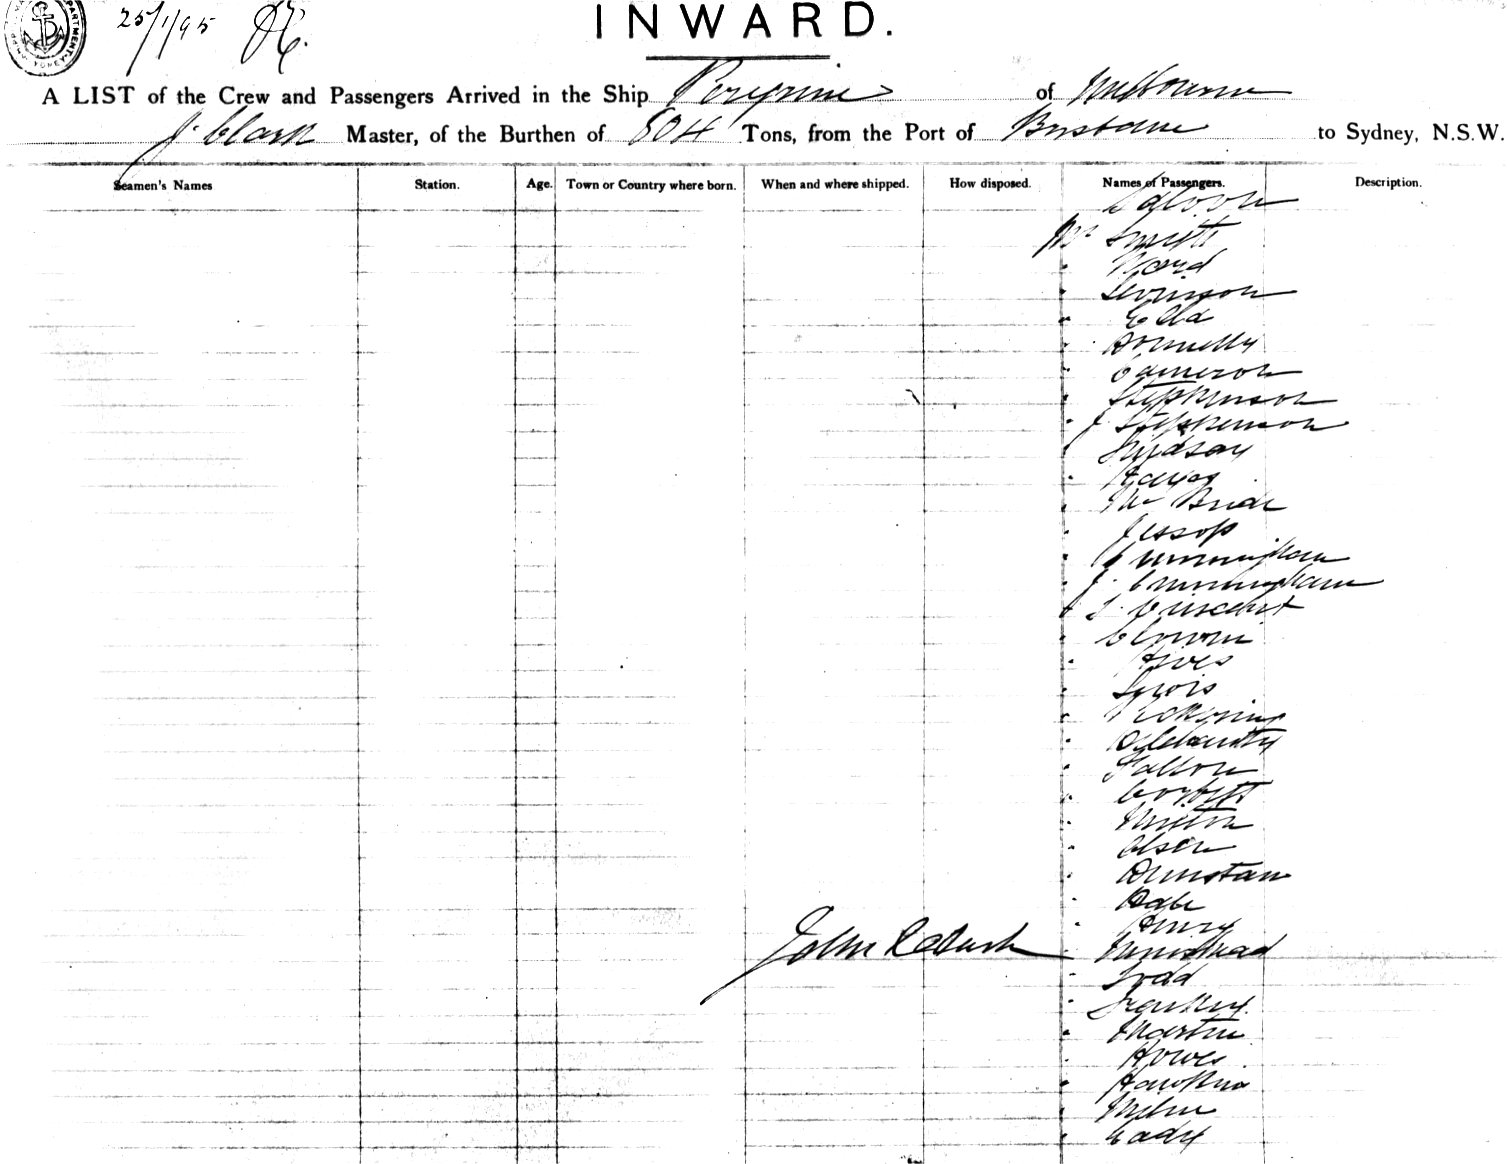 25/1/95
INWARD.
A LIST of the Crew and Passengers Arrived in the Ship Peregrine of Melbourne
J. Clark Master, of the Burthen of 804 Tons, from the Port of Brisbane to Sydney, N.S.W.
Seamen's Names Station. Age. Town or Country where born. When and where shipped. How disposed. Names of Passengers. Description.
Saloon
Mr Smith
" Ward
" Levinson
" Ella
" Donnelly
" Cameron
" Stephenson
" J Stephenson
Lindsay
" Hayes
" McBride
" Jessop
" Cunningham
" J. Cunningham
Vincent
"
" Hives
" Lewis
" Pickering
" Delehunty
" Fallon
" Corbett
" Mutton
" Olsen
" Dunstan
" Dale
" Henry
John R Clark
" Todd
"
" Martin
" Howes
" Hawkins
" Milne
" Eady